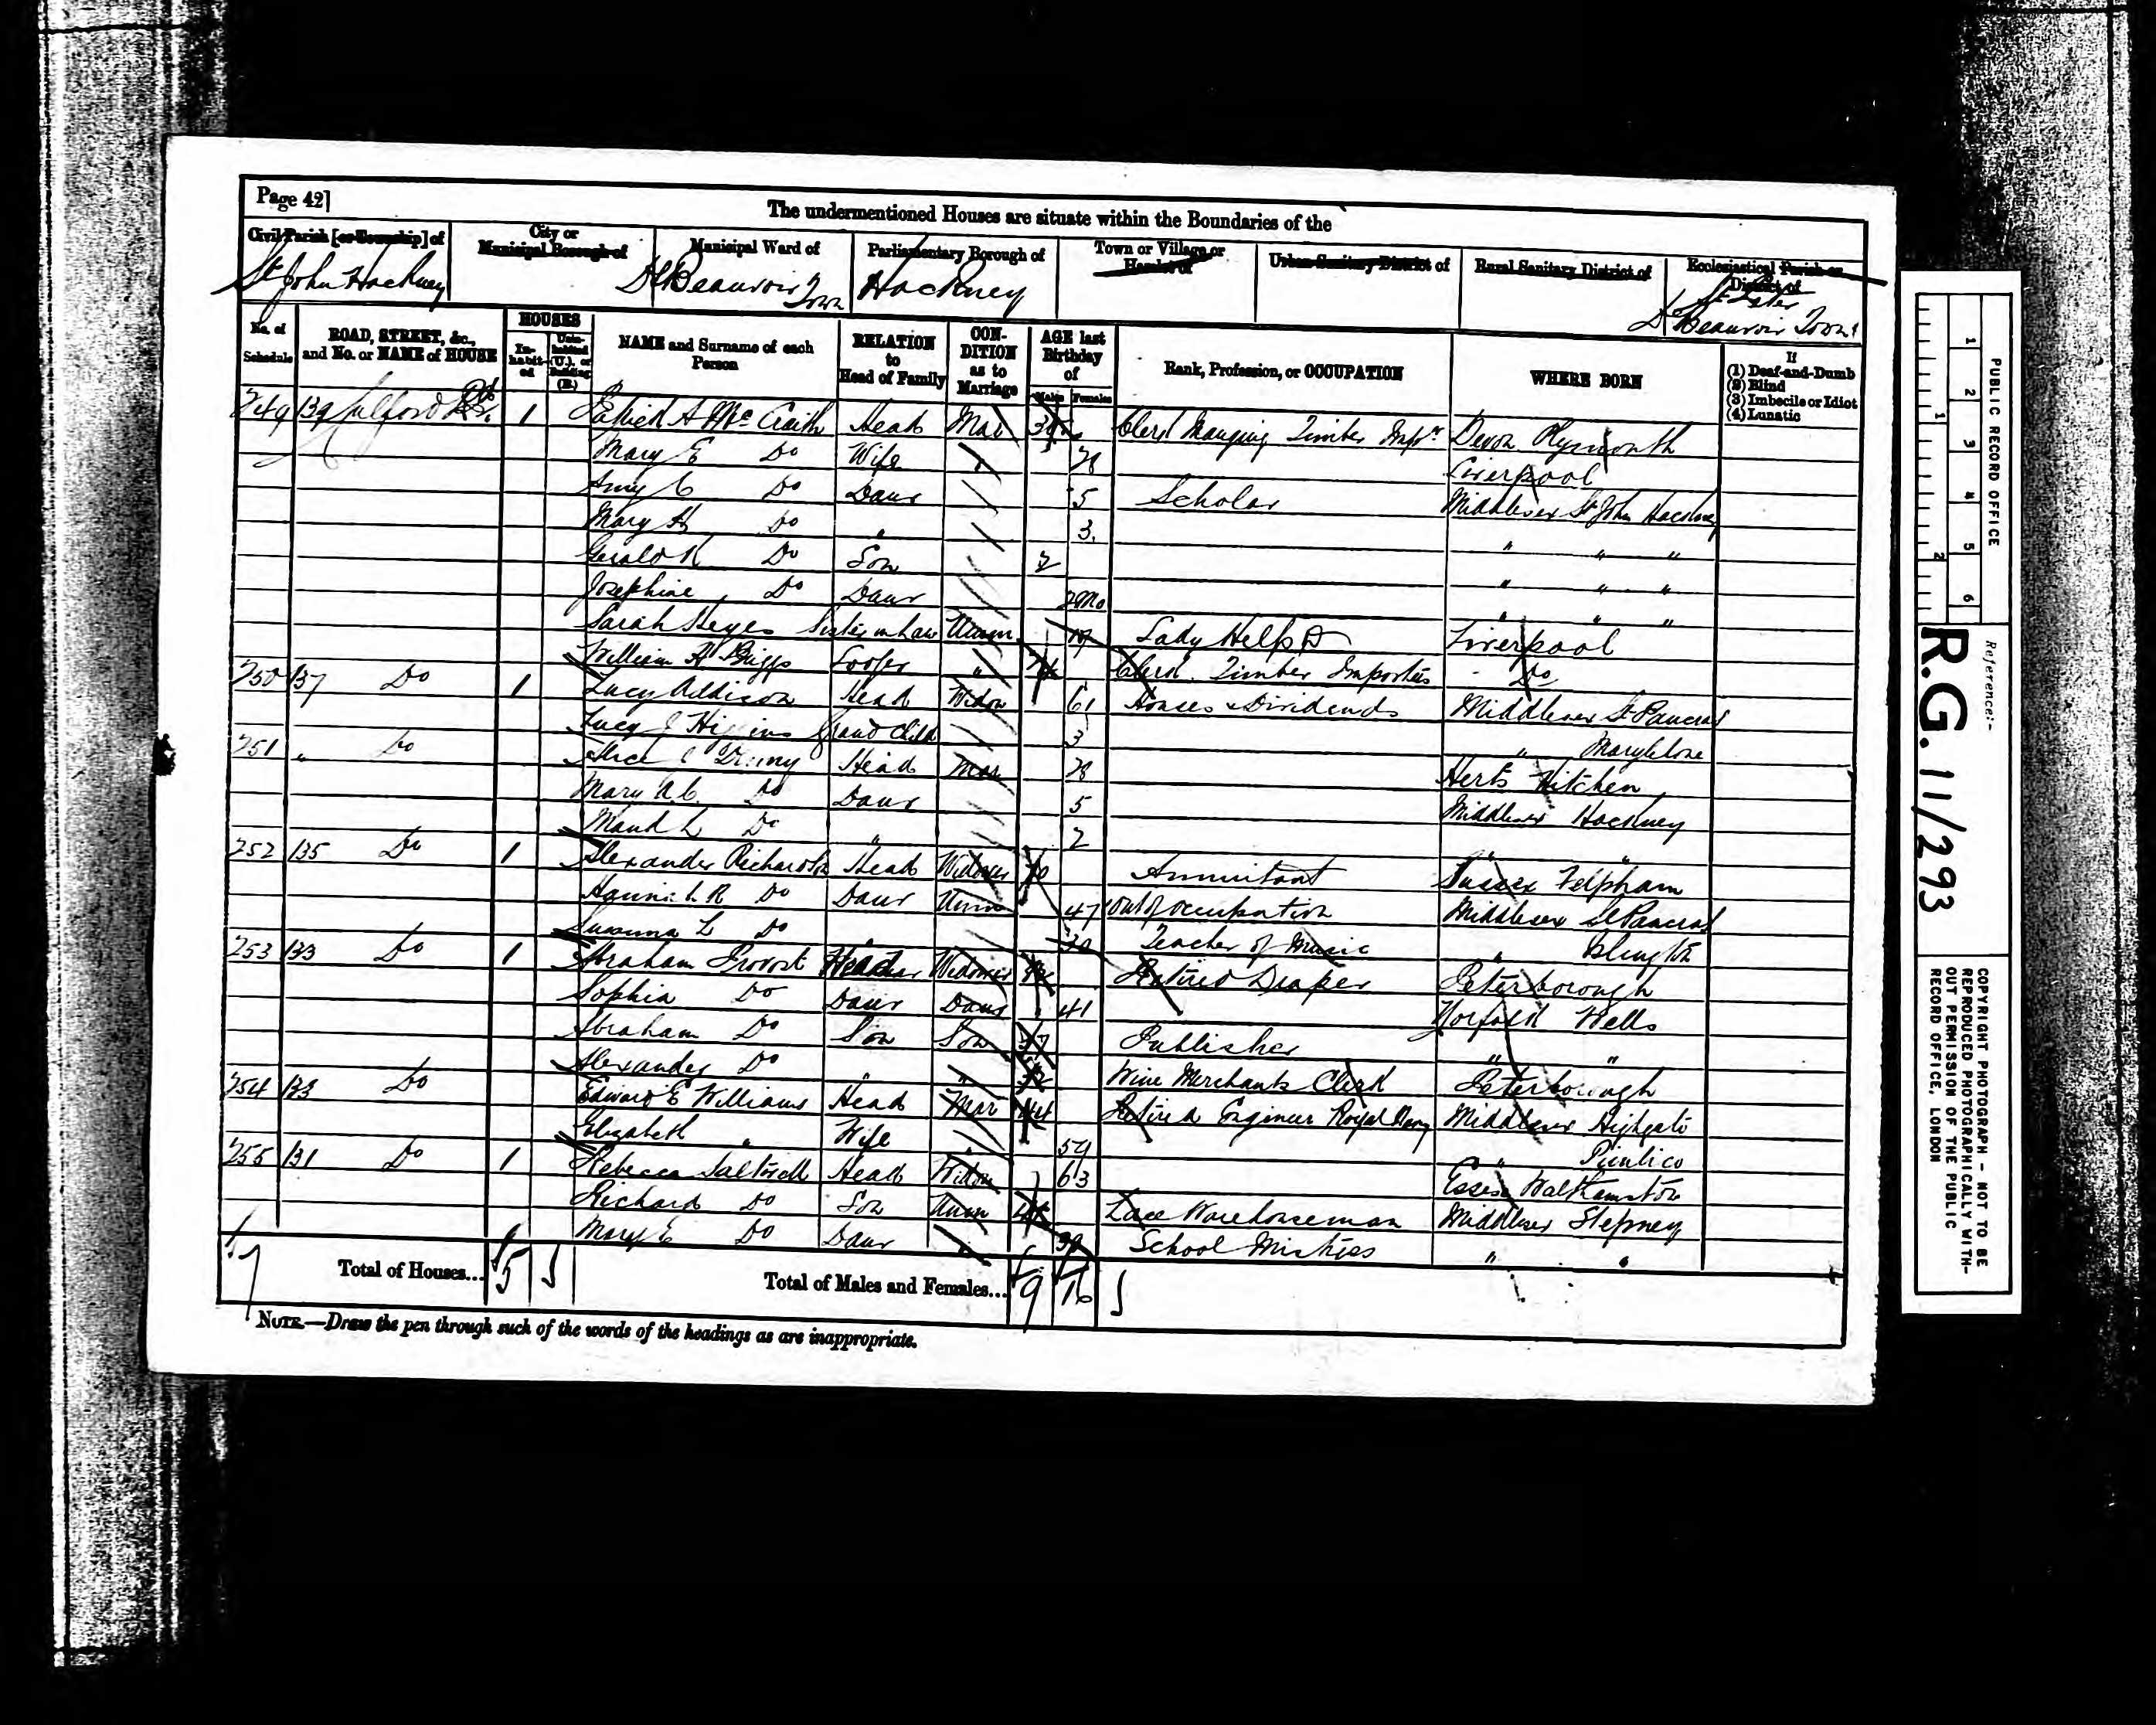 Page 42]
The undermentioned Houses are situate within the Boundaries of the
Civil Parish [or Township] of City or Municipal Borough of Municipal Ward of Parliamentary Borough of Town or Village or Hamlet of Urban Sanitary District of Rural Sanitary District of Ecclesiastical Parish or District of
St John Hackney De Beauvoir Town Hackney St Peter De Beauvoir Town
No. of Schedule ROAD, STREET, &c., and No. or NAME of HOUSE HOUSES Inhabited Uninhabited (U.), or Building (B.) NAME and Surname of each Person RELATION to Head of Family CONDITION as to Marriage AGE last Birthday of Males Females Rank, Profession, or OCCUPATION WHERE BORN If (1) Deaf-and-Dumb (2) Blind (3) Imbecile or Idiot (4) Lunatic
249 139 Culford Rd 1 A Mc Craith Head Mar Clerk Managing Timber Impr Devon Plymouth
Mary E Do Wife 28 Liverpool
Amy C Do Daur 5 Scholar Middlesex St John Hackney
Mary Do " 3 " " "
Gerald Do Son 2 " " "
Josephine Do Daur 2mo " " "
Sarah Keyes Sister in Law Unm Lady Help Liverpool
William H Briggs Lodger " Clerk Timber Importers Do
250 137 Do 1 Lucy Addison Head Widow 61 Houses & Dividends Middlesex St Pancras
Lucy Higgins Grand Child 3 " Marylebone
251 " Do Alice Head Mar 28 Herts Hitchen
Mary A C Do Daur 5 Middlesex Hackney
Maud L Do " 2 " "
252 135 Do 1 Alexander Richardson Head Widower 70 Annuitant Sussex Felpham
Hannah R Do Daur Unm 47 Out of occupation Middlesex St Pancras
Susanna L Do " Teacher of Music " Islington
253 133 Do 1 Abraham Provost Head Widower Retired Draper Peterborough
Sophia Do Daur Daur 41 Norfolk Wells
Abraham Do Son Son 37 Publisher " "
Alexander Do " " 32 Wine Merchants Clerk Peterborough
254 133 Do Edward E Williams Head Mar 44 Retired Engineer Royal Navy Middlesex Highgate
Elizabeth " Wife " 54 " Pimlico
255 131 Do 1 Rebecca Saltwell Head Widow 63 Essex Walthamstow
Richard Do Son Unm Lace Warehouseman Middlesex Stepney
Mary E Do Daur " School Mistress " "
Total of Houses... 5 Total of Males and Females... 9 16
NOTE.—Draw the pen through such of the words of the headings as are inappropriate.
1 2 3 4 5 6
1 2
PUBLIC RECORD OFFICE
Reference:-
R.G. 11/293
COPYRIGHT PHOTOGRAPH - NOT TO BE
REPRODUCED PHOTOGRAPHICALLY WITH-
OUT PERMISSION OF THE PUBLIC
RECORD OFFICE, LONDON